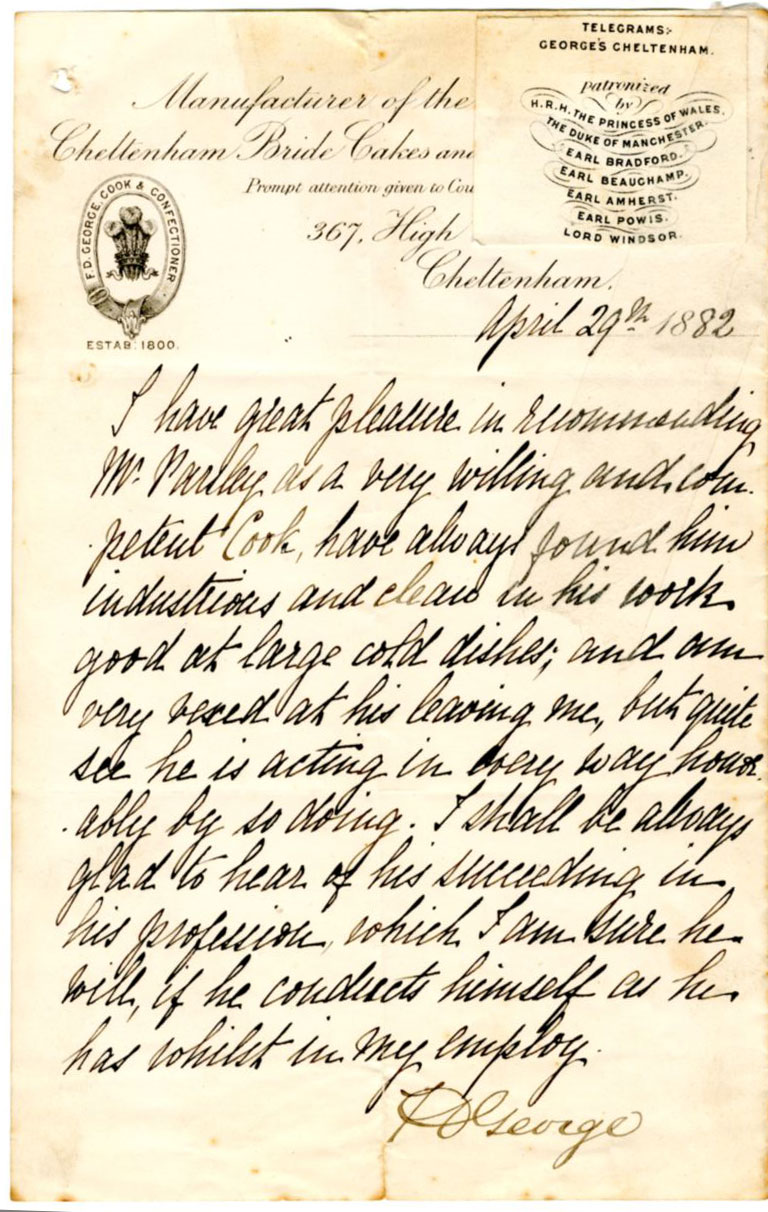 TELEGRAMS:-
GEORGE'S CHELTENHAM.
patronized
by
H.R.H. THE PRINCESS OF WALES.
THE DUKE OF MANCHESTER.
EARL BRADFORD.
EARL BEAUCHAMP.
EARL AMHERST.
EARL POWIS.
LORD WINDSOR.
Manufacturer of the
Cheltenham Bride Cakes and
Prompt attention given to Cou
367, High
Cheltenham.
F.D. GEORGE, COOK & CONFECTIONER
ESTAB: 1800.
April 29th 1882
I have great pleasure in recommending
Mr. Parsley as a very willing and com-
-petent Cook, have always found him
industrious and clean in his work
good at large cold dishes; and am
very vexed at his leaving me, but quite
see he is acting in every way honor-
-ably by so doing. I shall be always
glad to hear of his succeeding in
his profession, which I am sure he
will, if he conducts himself as he
has whilst in my employ.
F D George